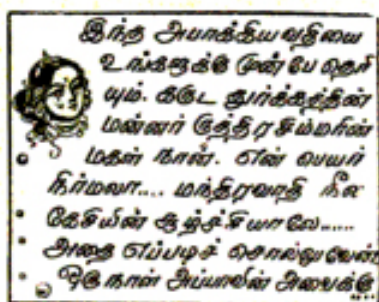 இந்த அபாக்கியவதியை
உங்களுக்கு முன்பே தெரி
யும். கருட துர்க்கத்தின்
மன்னர் ருத்திரசிம்மரின்
மகள் நான். என் பெயர்
நிர்மலா.... மந்திரவாதி நீல
கேசியின் சூழ்ச்சியாலே......
அதை எப்படிச் சொல்லுவேன்
ஒரு நாள் அப்பாவின் அவைக்கு
....